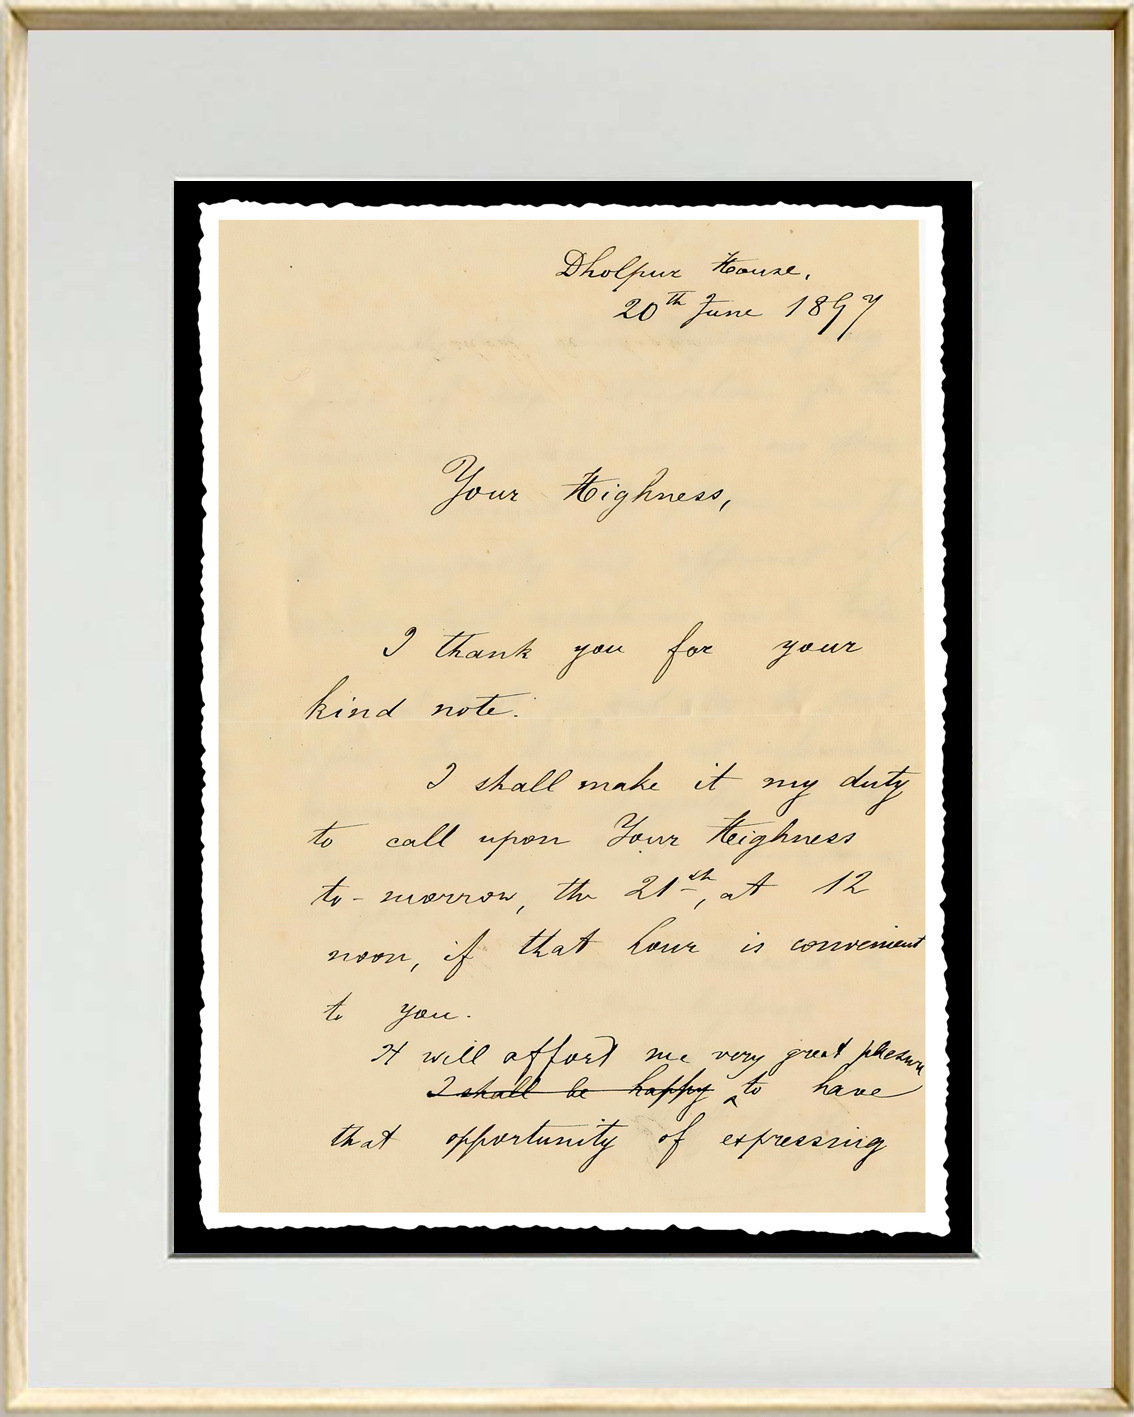 Dholpur House,
20th June 1897
Your Highness,
I thank you for your
kind note.
I shall make it my duty
to call upon Your Highness
to-morrow, the 21st, at 12
noon, if that hour is convenient
to you.
It will afford me very great pleasure
I shall be happy ‸ to have
that opportunity of expressing